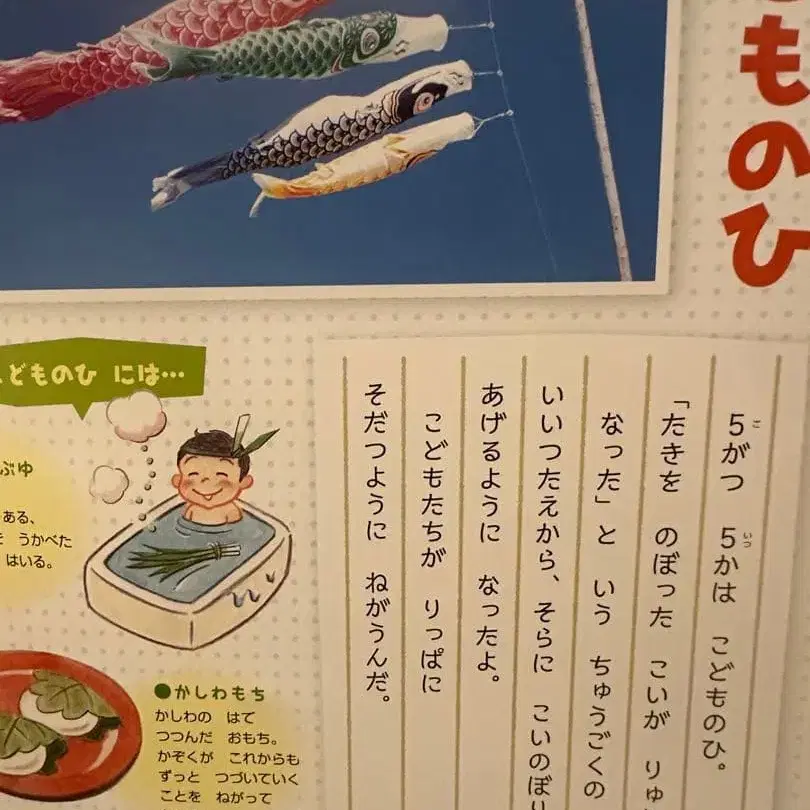 ものひ
5がつ 5かは こどものひ。
「たきを のぼった こいが りゅ
なった」と いう ちゅうごくの
いいつたえから、そらに こいのぼり
あげるように なったよ。
こどもたちが りっぱに
そだつように ねがうんだ。
こ
いつ
こどものひ には…
ぶゆ
ある、
うかべた
はいる。
●かしわもち
かしわの はで
つつんだ おもち。
かぞくが これからも
ずっと つづいていく
ことを ねがって